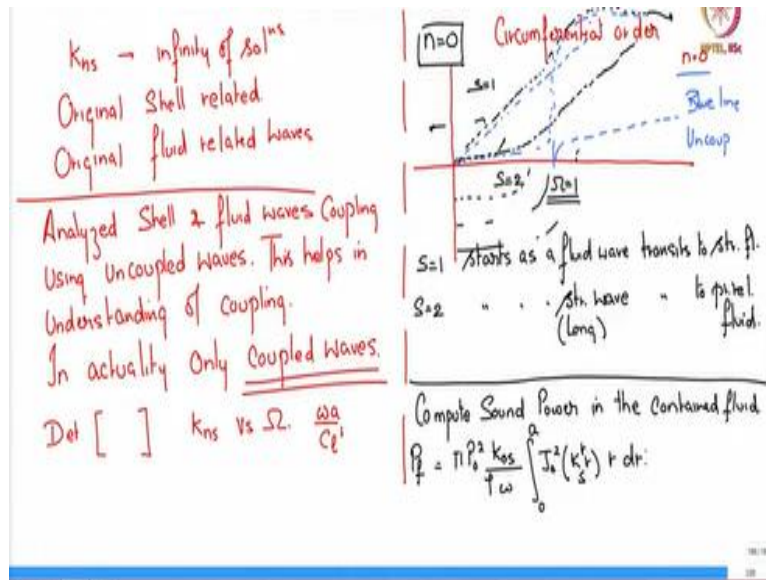 Kns → infinity of solns
Original Shell related
Original fluid related waves
Analyzed Shell & fluid waves Coupling
Using Uncoupled waves. This helps in
Understanding of coupling.
In actuality Only Coupled Waves.
Det [ ] Kns vs Ω. ωa/Cl'
n=0 Circumferential order
n=0
Blue line
Uncoup
S=1
S=2
Ω=1
S=1 starts as a fluid wave transits to str. fl.
S=2 " . . str. wave " to pr. rel.
(long) fluid.
Compute Sound Power in the Contained fluid
Pf = π P₀² k₀s/ρω ∫₀ᵃ J₀²(Ksʳr) r dr.